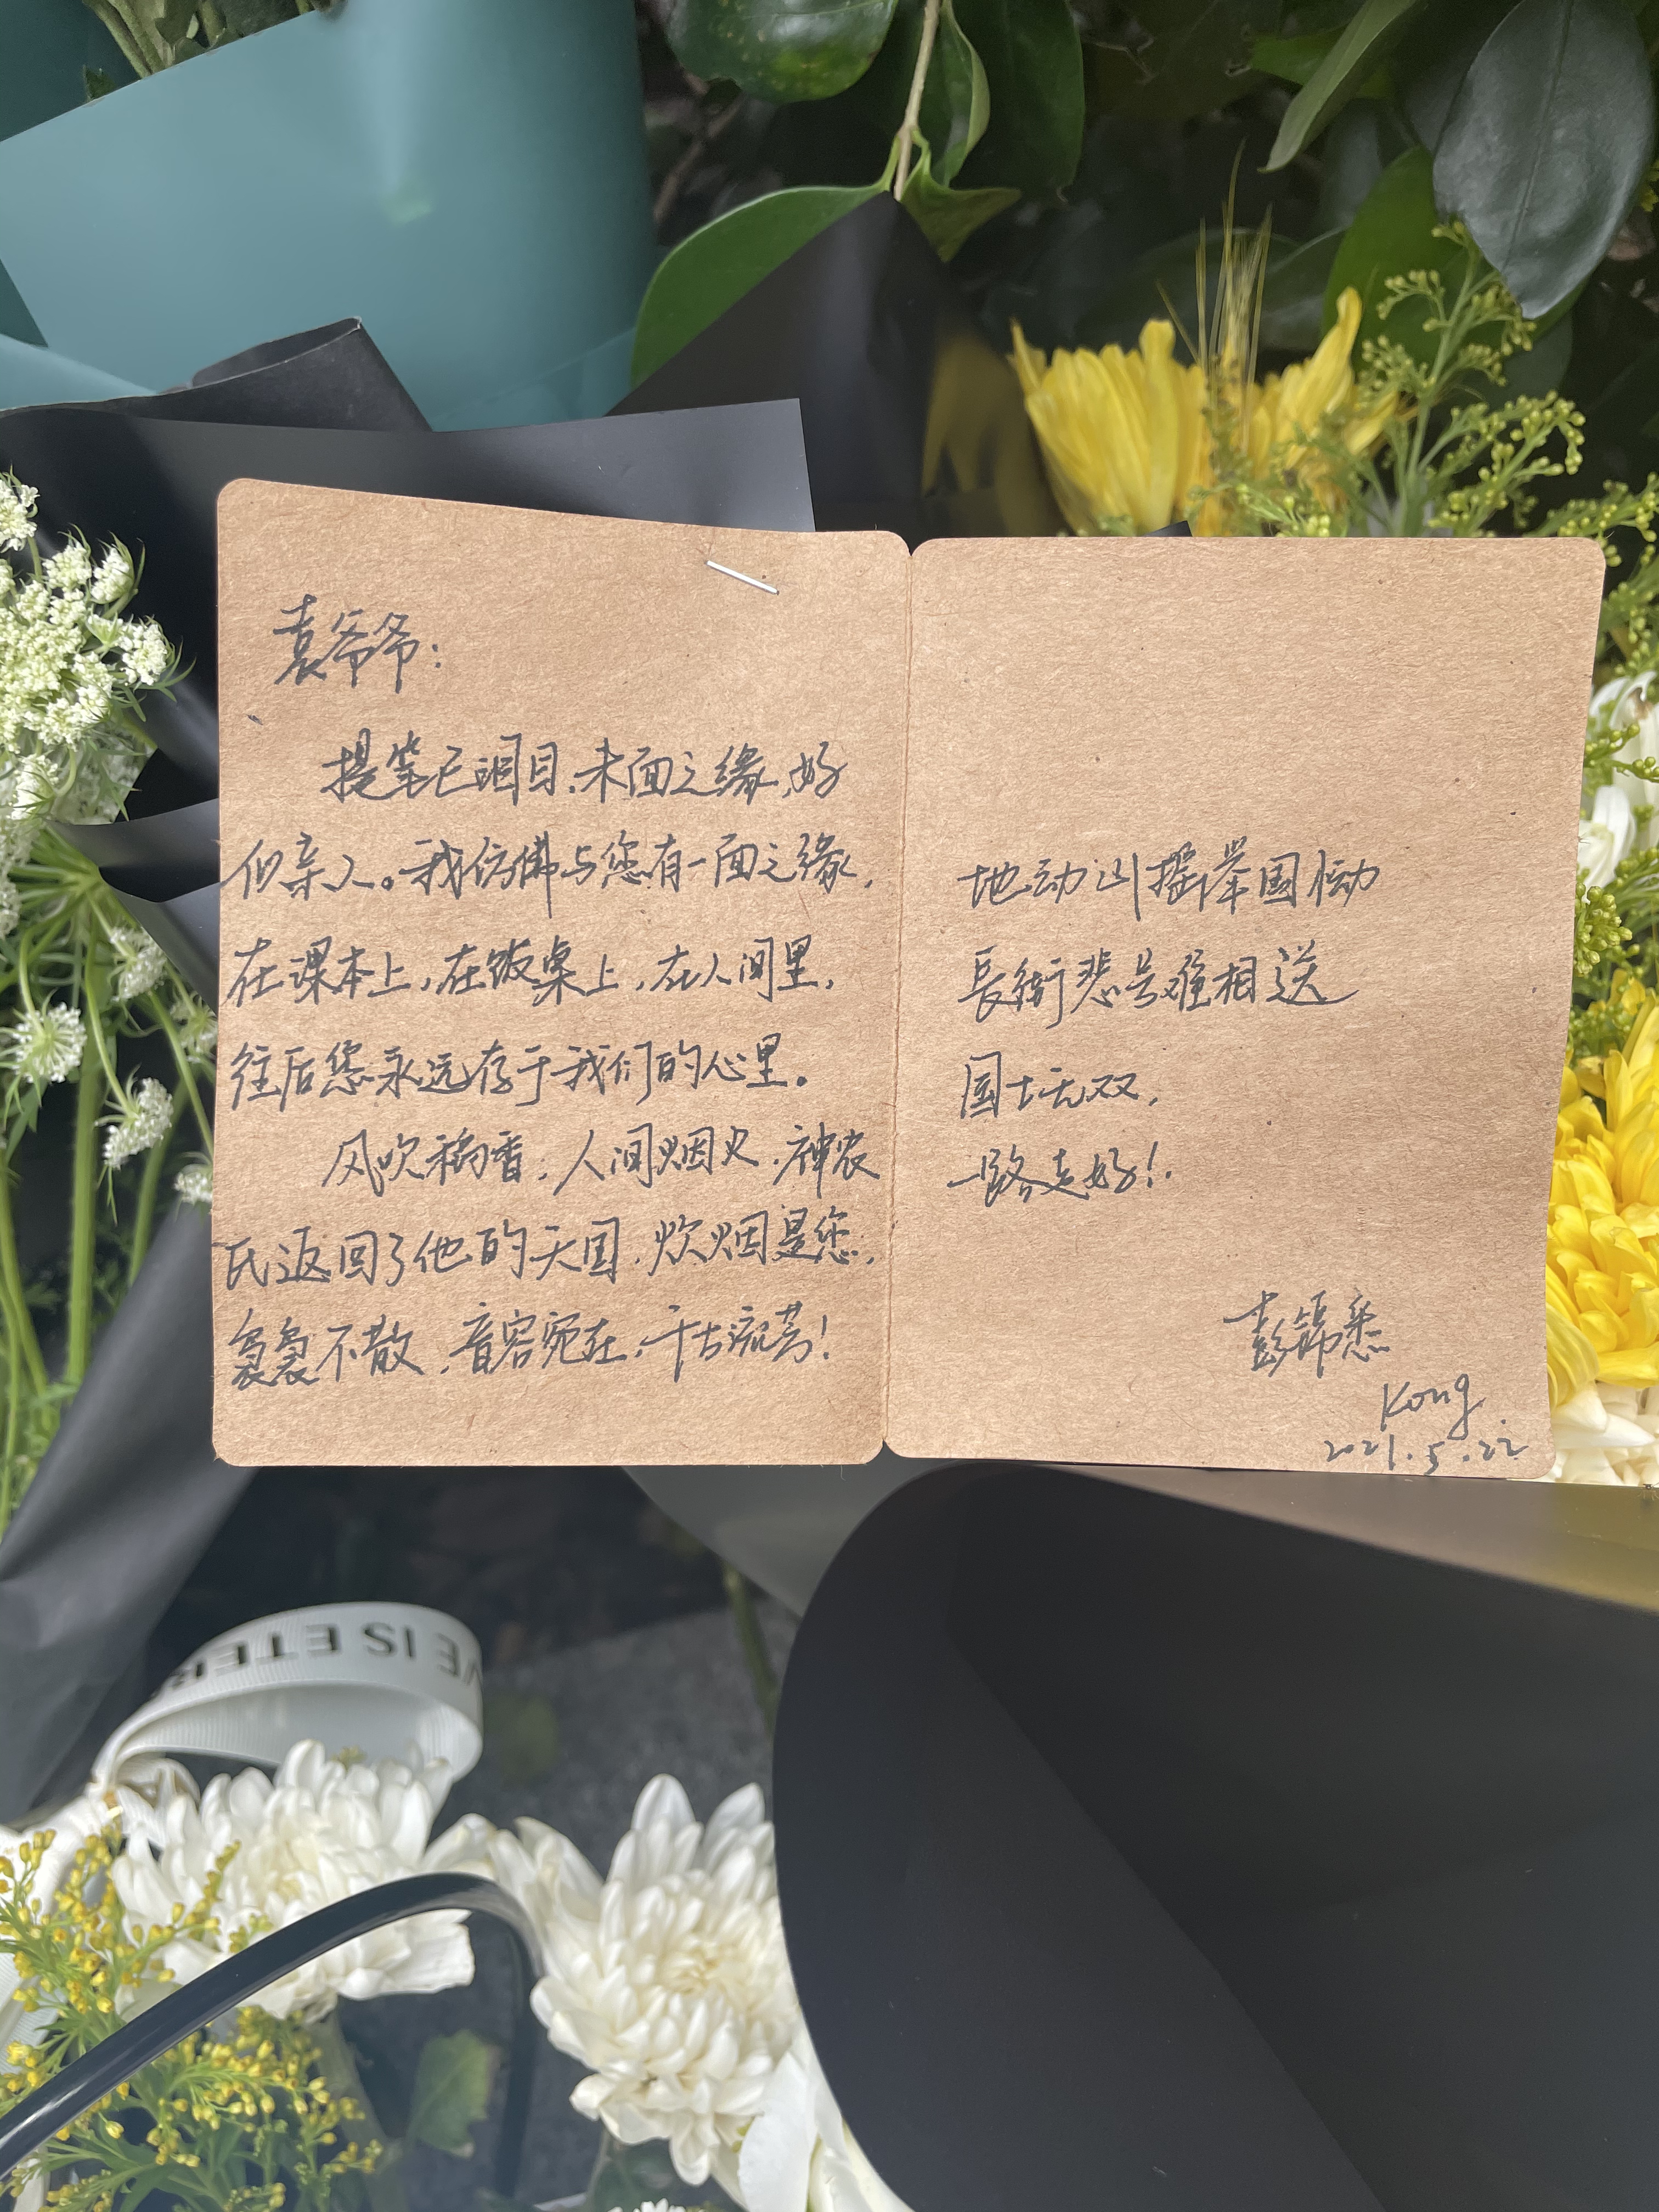 袁爷爷：
提笔已泪目，未面之缘，好
似亲人。我仿佛与您有一面之缘，
在课本上，在饭桌上，在人间里，
往后您永远存于我们的心里。
风吹稻香，人间烟火，神农
氏返回了他的天国，炊烟是您，
袅袅不散，音容宛在，千古流芳！
地动山摇举国恸
長街悲号难相送
国士无双，
一路走好！
彭锦悉
Kong
2021.5.22
VE IS ETER